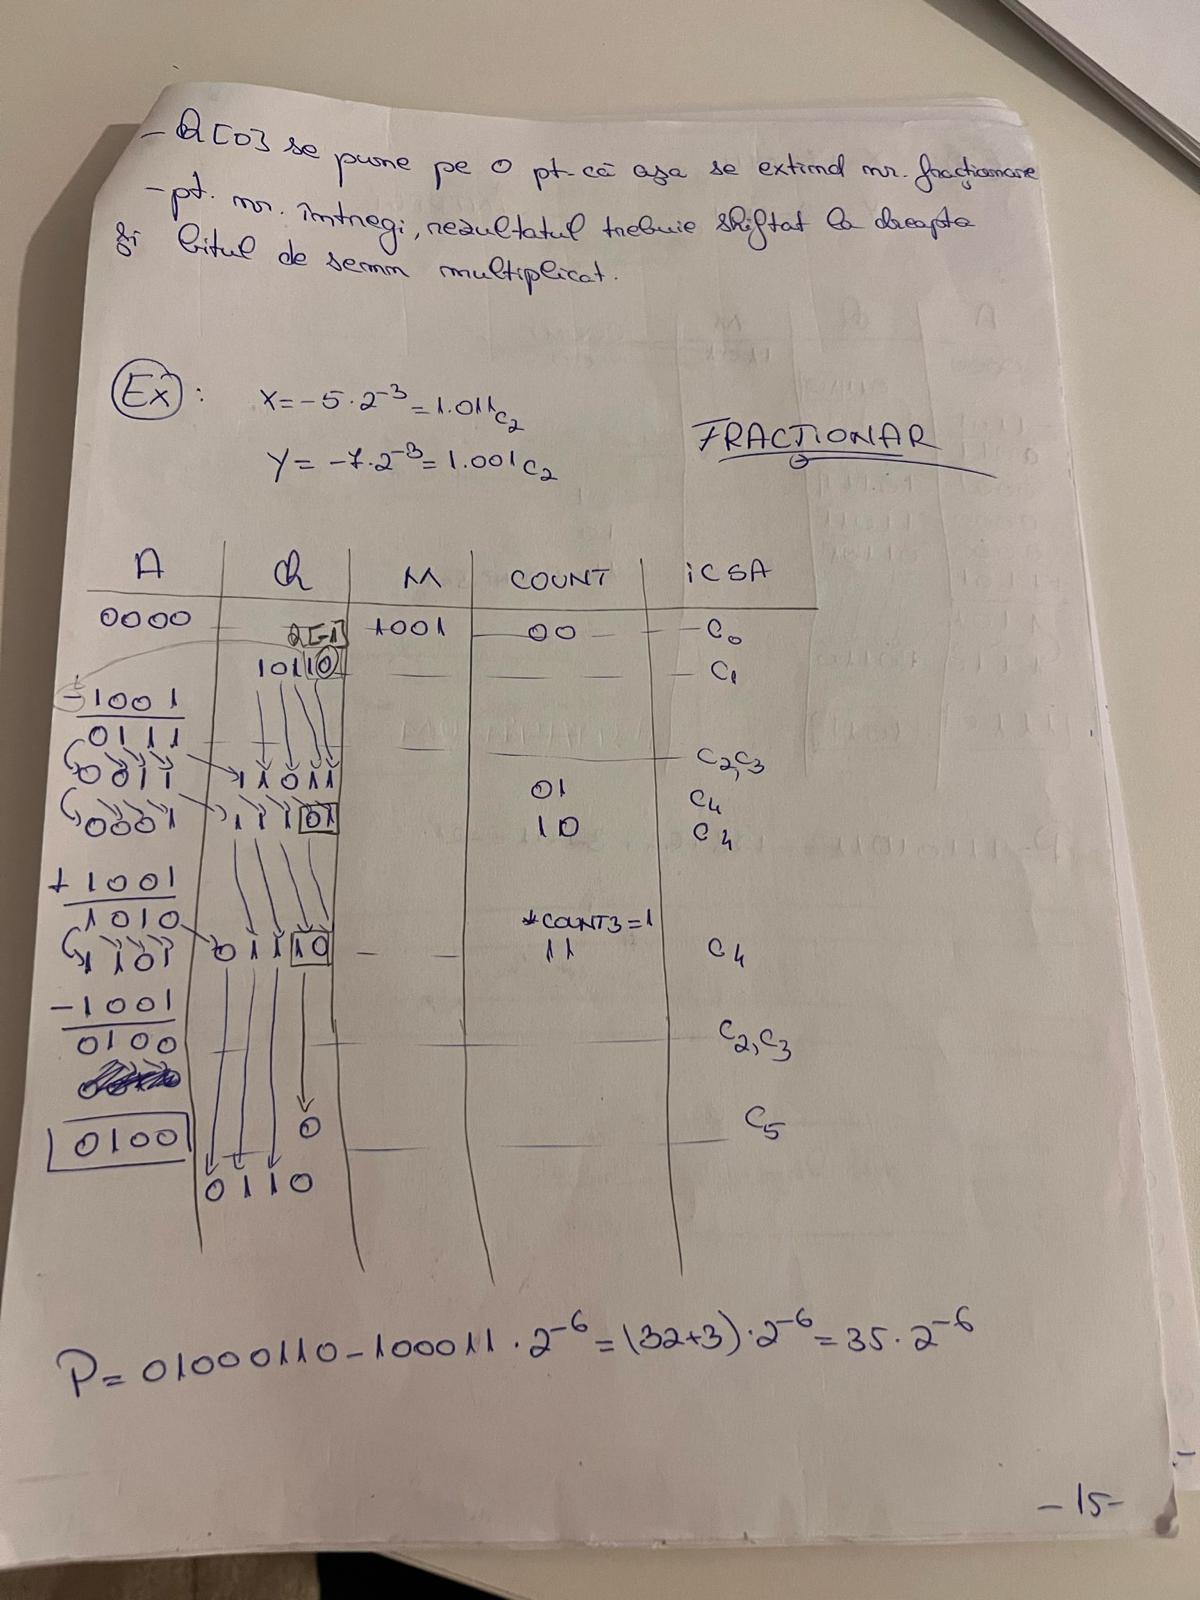 - Q[0] se pune pe 0 pt. că așa se extind nr. fracționare
- pt. nr. întregi, rezultatul trebuie shiftat la dreapta
și bitul de semn multiplicat.
Ex: X = -5·2^-3 = 1.011 C2
Y = -7·2^-3 = 1.001 C2
FRACȚIONAR
A Q M COUNT iCSA
0000 Q[-1] 1001 00 C0
10110 C1
-1001
0111
C2,C3
0011 11011 01 C4
0001 11101 10 C4
+1001
1010 *COUNT3=1
1101 01110 11 C4
-1001
0100 C2,C3
0 C5
0100
0110
P = 01000110 - 100011·2^-6 = (32+3)·2^-6 = 35·2^-6
-15-